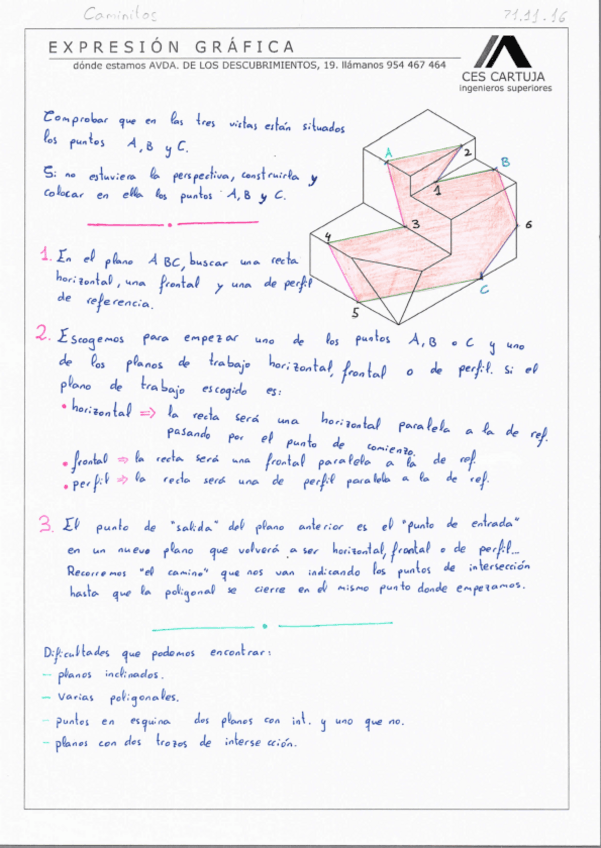 Caminitos
21.11.16
EXPRESIÓN GRÁFICA
dónde estamos AVDA. DE LOS DESCUBRIMIENTOS, 19. llámanos 954 467 464
CES CARTUJA
ingenieros superiores
Comprobar que en las tres vistas están situados
los puntos A, B y C.
Si no estuviera la perspectiva, construirla y
colocar en ella los puntos A, B y C.
A
2
B
1
3
6
4
C
5
1. En el plano ABC, buscar una recta
horizontal, una frontal y una de perfil
de referencia.
2. Escogemos para empezar uno de los puntos A, B o C y uno
de los planos de trabajo horizontal, frontal o de perfil. si el
plano de trabajo escogido es:
• horizontal => la recta será una horizontal paralela a la de ref.
pasando por el punto de comienzo.
• frontal => la recta será una frontal paralela a la de ref.
• perfil => la recta será una de perfil paralela a la de ref.
3. El punto de "salida" del plano anterior es el "punto de entrada"
en un nuevo plano que volverá a ser horizontal, frontal o de perfil...
Recorremos "el camino" que nos van indicando los puntos de intersección
hasta que la poligonal se cierre en el mismo punto donde empezamos.
Dificultades que podemos encontrar:
- planos inclinados.
- varias poligonales.
- puntos en esquina dos planos con int. y uno que no.
- planos con dos trozos de intersección.